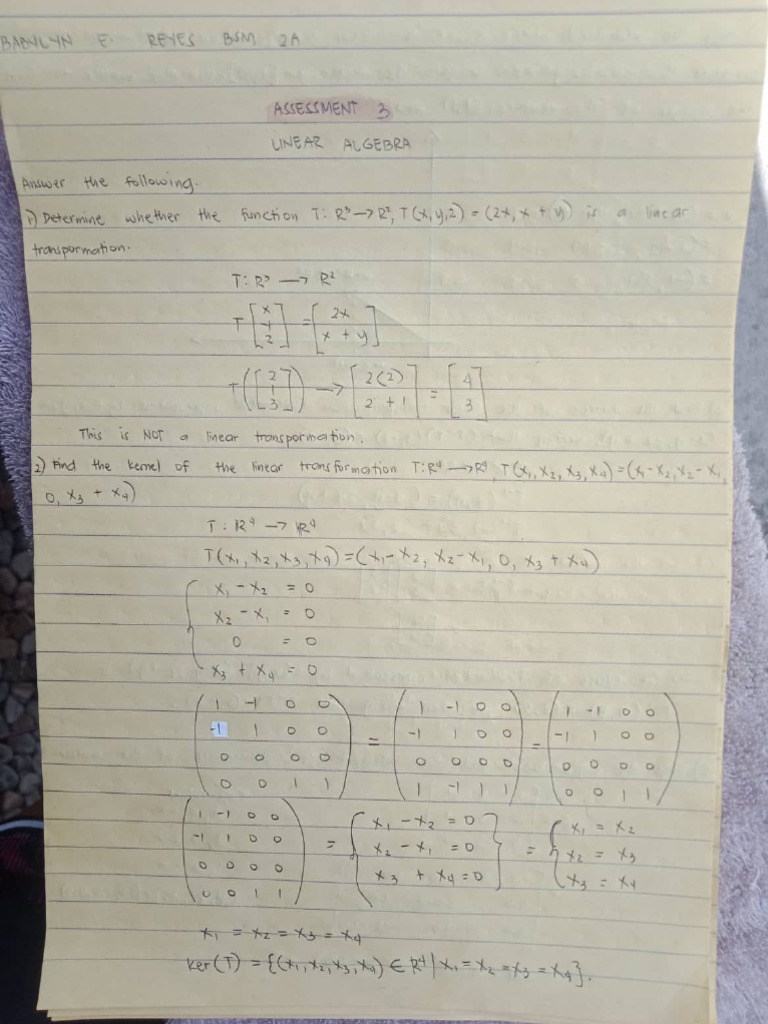 BABYLYN E. REYES BSM 2A
ASSESSMENT 3
LINEAR ALGEBRA
Answer the following.
1) Determine whether the function T: R³ → R², T(x,y,z) = (2x, x + y) is a linear
transpormation.
T: R³ → R²
T [x y z] = [2x x + y]
T([2 1 3]) → [2(2) 2 + 1] = [4 3]
This is NOT a linear transpormation.
2) Find the kernel of the linear transformation T:R⁴ → R⁴, T(x₁, x₂, x₃, x₄) = (x₁-x₂, x₂-x₁,
0, x₃ + x₄)
T: R⁴ → R⁴
T(x₁, x₂, x₃, x₄) = (x₁ - x₂, x₂ - x₁, 0, x₃ + x₄)
x₁ - x₂ = 0
x₂ - x₁ = 0
0 = 0
x₃ + x₄ = 0
1 -1 0 0 1 -1 0 0 1 -1 0 0
-1 1 0 0 = -1 1 0 0 = -1 1 0 0
0 0 0 0 0 0 0 0 0 0 0 0
0 0 1 1 1 -1 1 1 0 0 1 1
1 -1 0 0 x₁ - x₂ = 0 x₁ = x₂
-1 1 0 0 = { x₂ - x₁ = 0 } = { x₂ = x₃
0 0 0 0 x₃ + x₄ = 0 x₃ = x₄
0 0 1 1
x₁ = x₂ = x₃ = x₄
ker(T) = {(x₁, x₂, x₃, x₄) ∈ R⁴ | x₁ = x₂ = x₃ = x₄}.